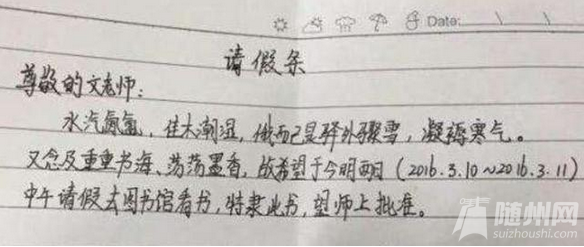 Date:
请假条
尊敬的文老师:
水汽氤氲,佳木潮湿,俄而已是驿外骤雪,凝稀寒气。
又念及重重书海、荡荡墨香,故希望于今明两日(2016.3.10~2016.3.11)
中午请假去图书馆看书,特隶此书,望师上批准。
随州网
suizhoushi.com